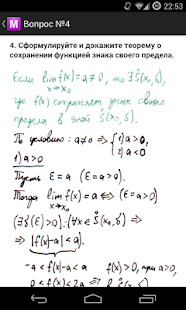 22:53
M Вопрос №4
4. Сформулируйте и докажите теорему о
сохранении функцией знака своего предела.
Если lim f(x) = a ≠ 0, то ∃ Ṡ(x₀, δ),
x→x₀
где f(x) сохраняет знак своего
предела в этой Ṡ(x₀, δ).
По условию: a ≠ 0 ⇒ {1) a > 0,
2) a < 0,
1) a > 0
Пусть Ɛ = a (Ɛ = a > 0).
Тогда lim f(x) = a ⇔ (∃ Ɛ = a > 0)
x→x₀
(∃ δ(Ɛ) > 0): (∀x ∈ Ṡ(x₀, δ)) ⇒
⇒ |f(x) - a| < a)
-a < f(x) - a < a f(x) > 0, при a > 0,
0 < f(x) < 2a